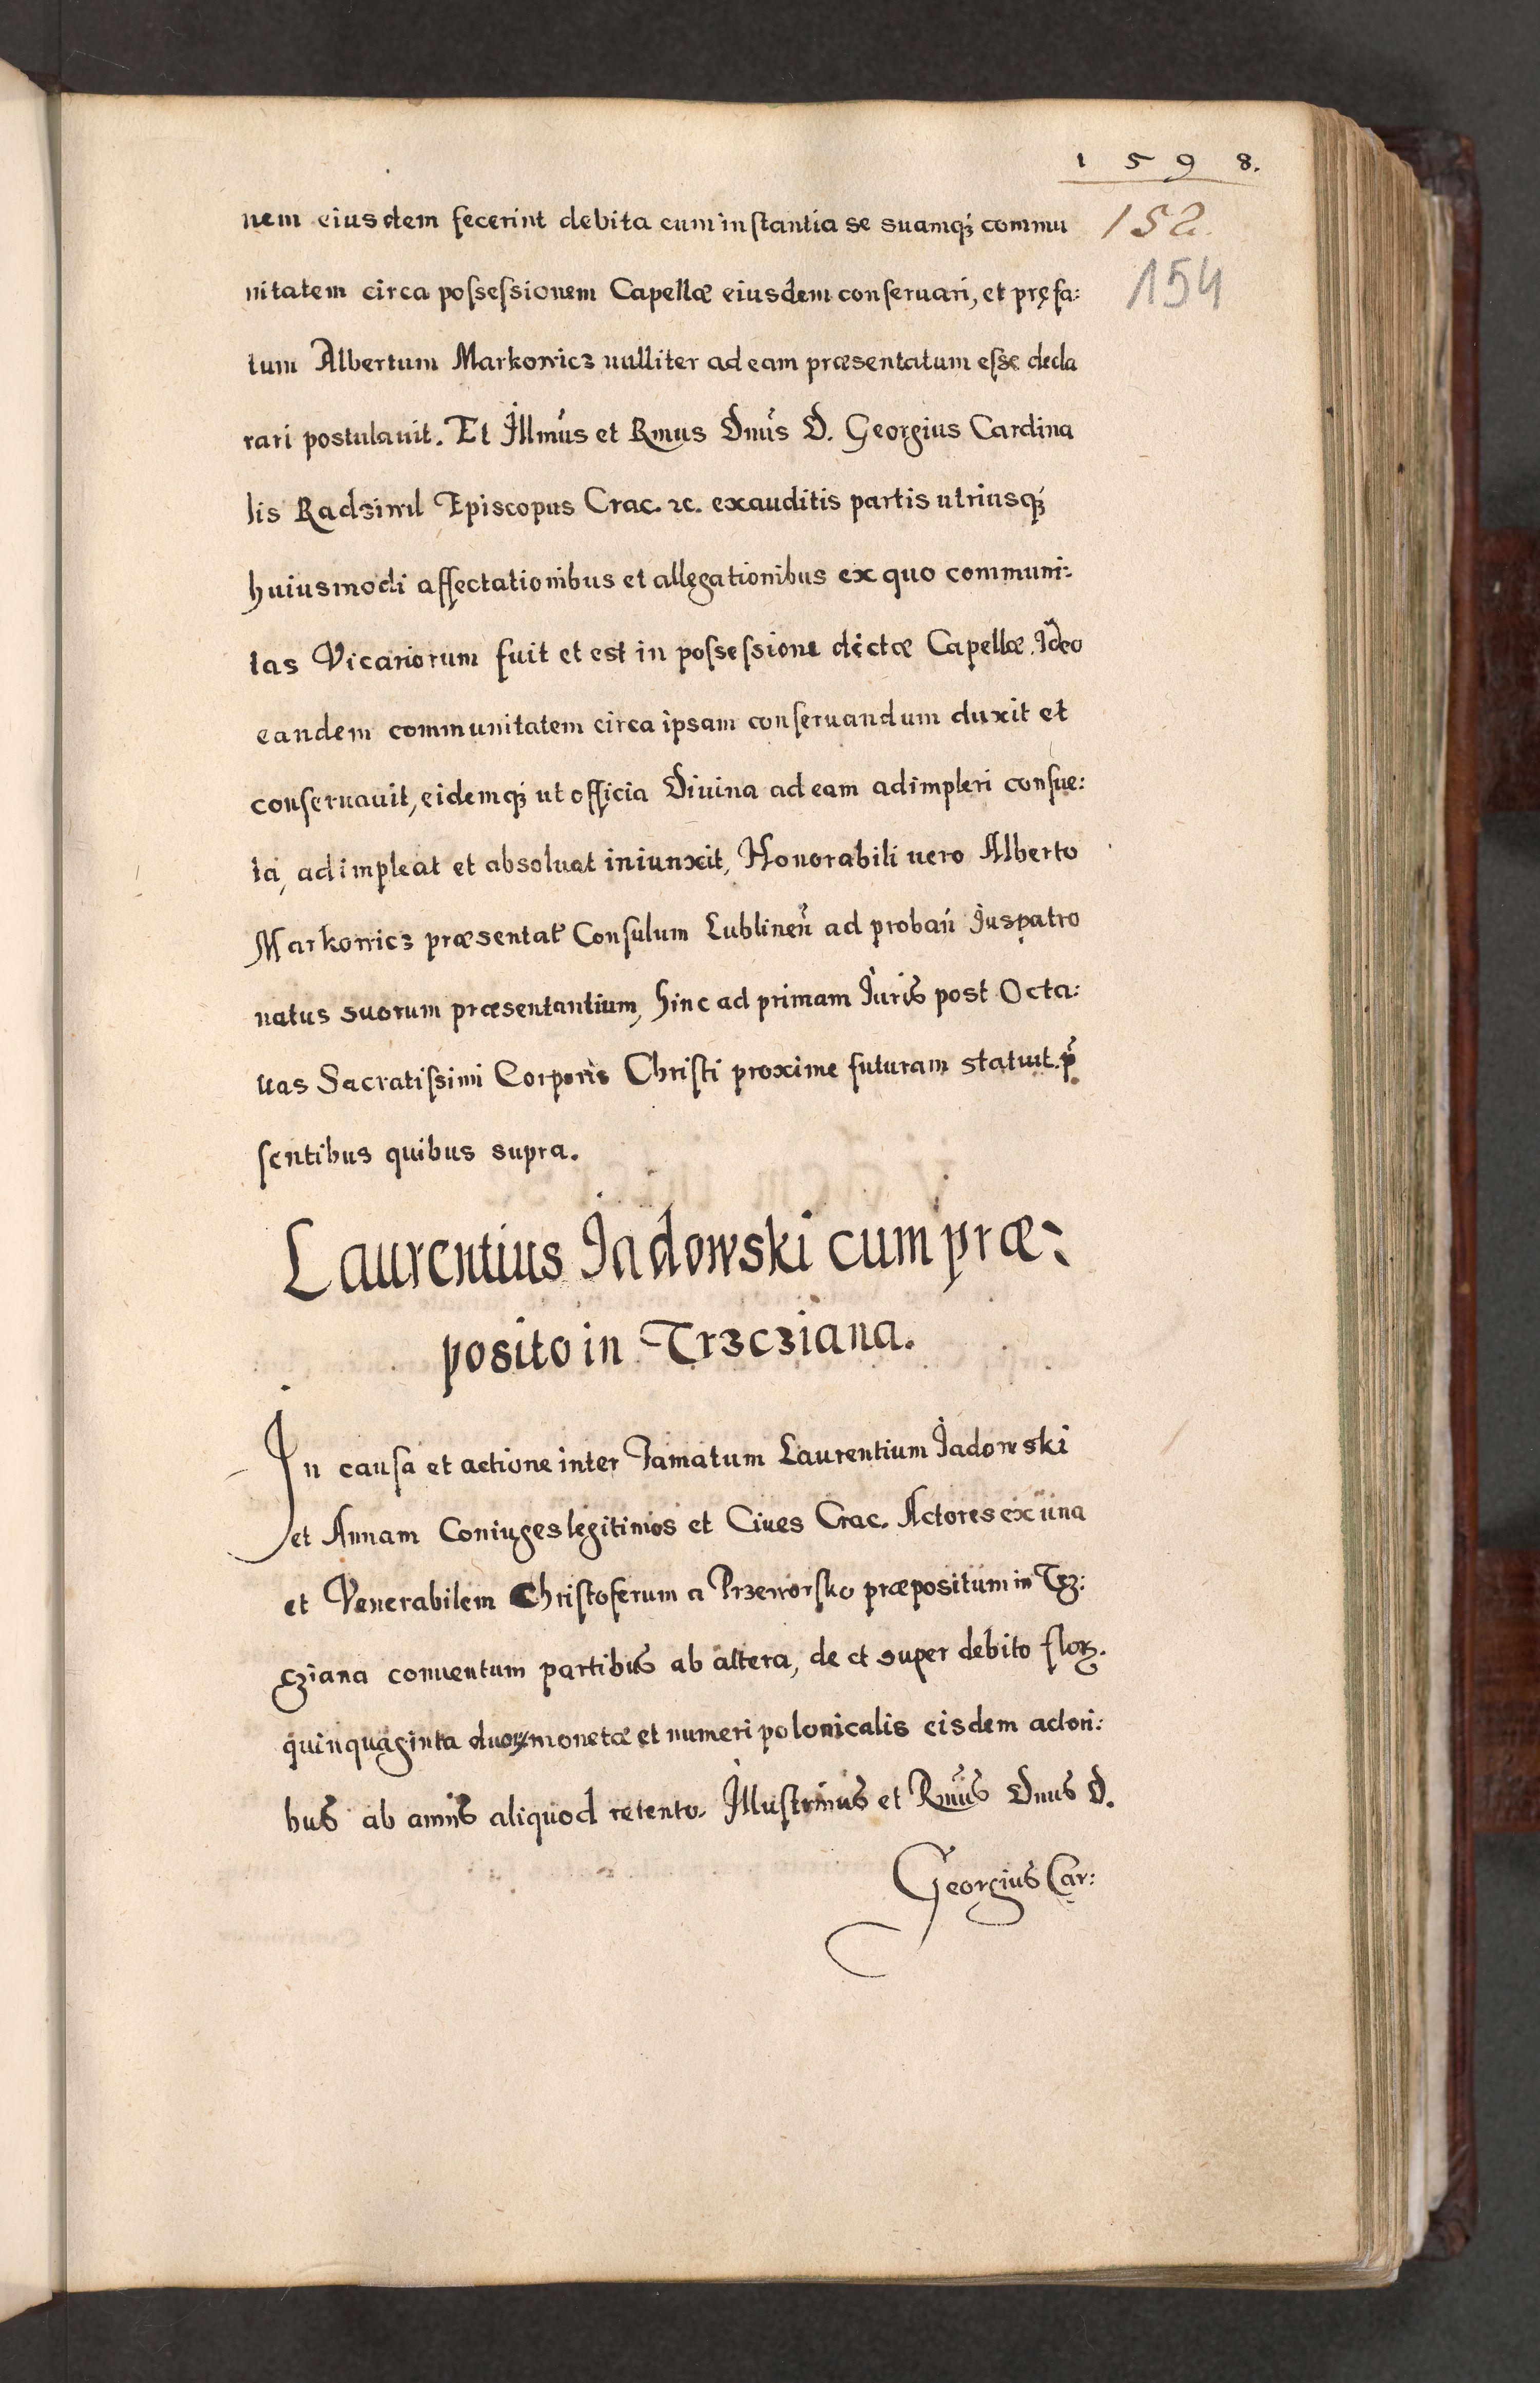 1598.
152.
154
nem eiusdem fecerint debita cum instantia se suamq́ꝫ commu
nitatem circa possessionem Capellæ eiusdem conseruari, et pręfa:
tum Albertum Markowicz nulliter ad eam præsentatum esse decla
rari postulauit. Et Illmus et Rmus Dnus D. Georgius Cardina
lis Radziwil Episcopus Crac. ꝛc. exauditis partis utriusq́ꝫ
huiusmodi affectationibus et allegationibus ex quo communi:
tas Vicariorum fuit et est in possessione dictæ Capellæ. Ideo
eandem communitatem circa ipsam conseruandum duxit et
conseruauit, eidemq́ꝫ ut officia Diuina ad eam adimpleri consue:
ta, adimpleat et absoluat iniunxit, Honorabili uero Alberto
Markowicz præsentat̃ Consulum Lublineñ ad probañ Iuspatro
natus suorum præsentantium, hinc ad primam Iuris post Octa:
uas Sacratissimi Corporis Christi proxime futuram statuit. p̃
sentibus quibus supra.
Laurentius Jadowski cum præ:
posito in Trzcziana.
In causa et actione inter Famatum Laurentium Jadowski
et Annam Coniuges legitimos et Ciues Crac. Actores ex una
et Venerabilem Christoferum a Przeworsko præpositum in Trz:
cziana conuentum partibus ab altera, de et super debito floꝝ.
quinquaginta duoꝝ monetæ et numeri polonicalis eisdem actori:
bus ab annis aliquod retento. Illustrimus et Rmus Dnus D.
Georgius Car: